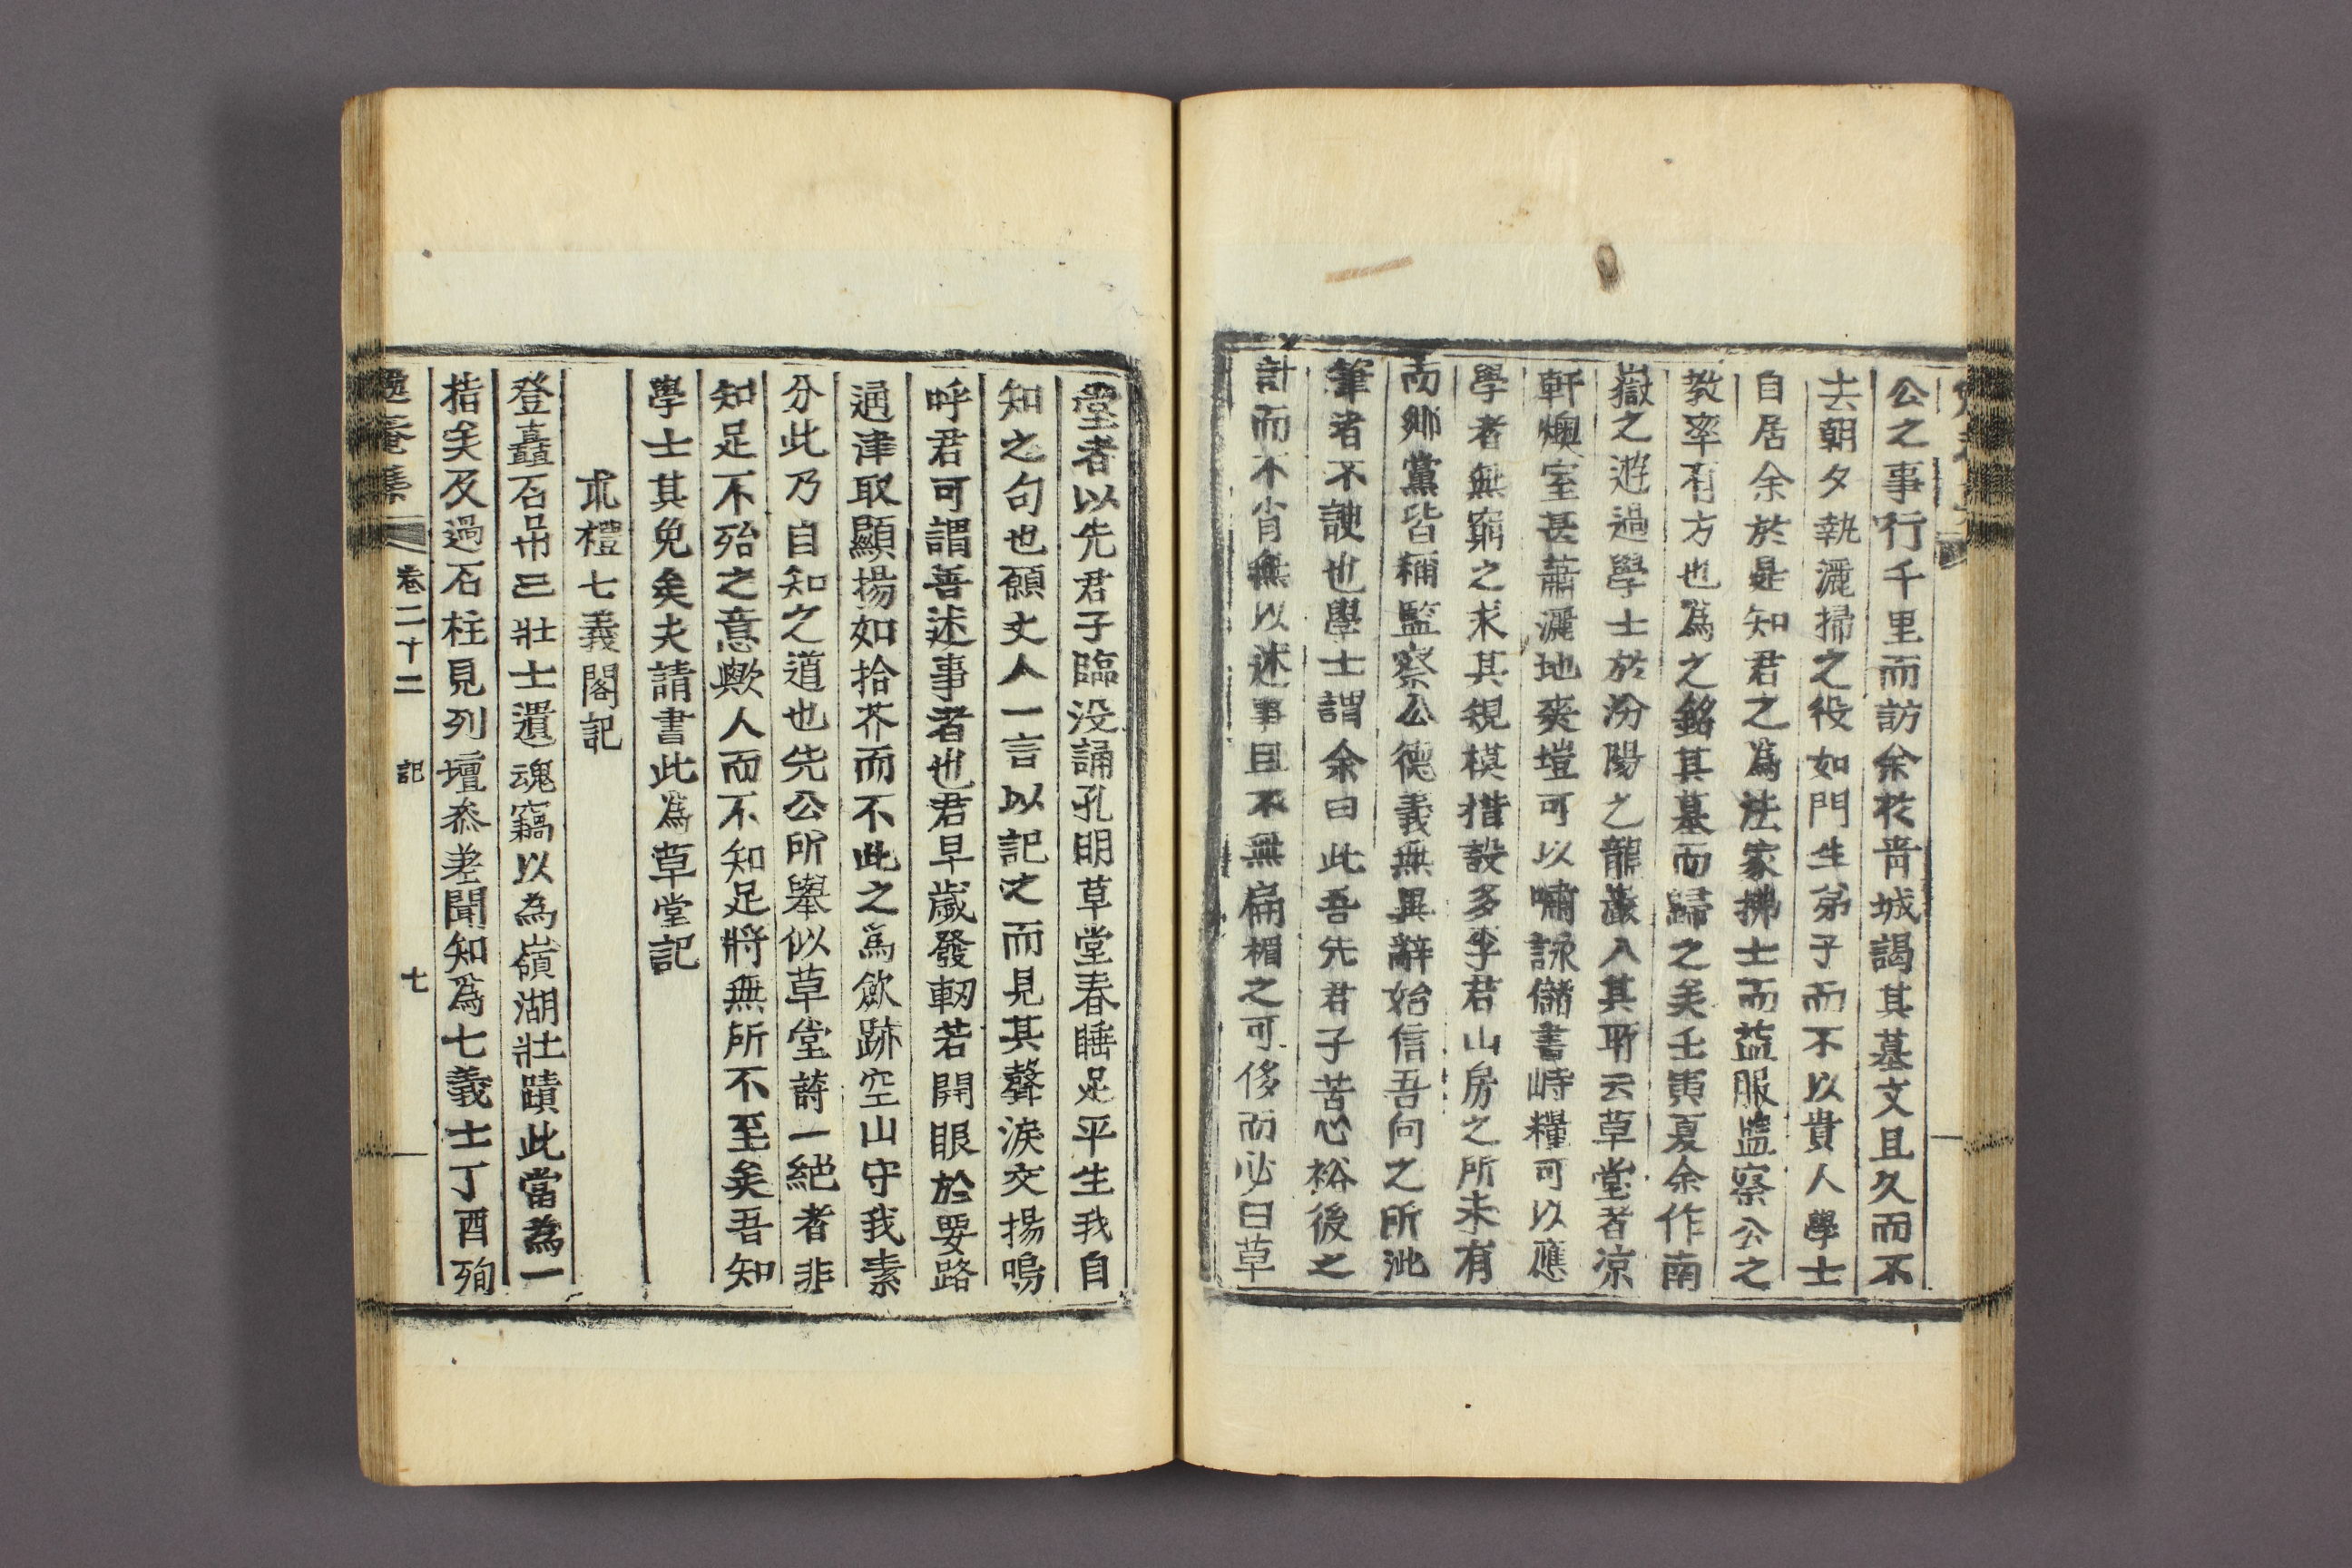 公之事行千里而訪余於靑城謁其墓文且久而不
去朝夕執灑掃之役如門生弟子而不以貴人學士
自居余於是知君之爲法家拂士而益服監察公之
敎率有方也爲之銘其墓而歸之矣壬寅夏余作南
嶽之遊過學士於汾陽之龍巖入其所云草堂者凉
軒燠室甚蕭灑地爽塏可以嘯詠儲書峙糧可以應
學者無窮之求其規模措設多李君山房之所未有
而鄉黨皆稱監察公德義無異辭始信吾向之所泚
筆者不諛也學士謂余曰此吾先君子苦心裕後之
計而不肖無以述事且不無扁楣之可侈而必曰草
堂者以先君子臨没誦孔明草堂春睡足平生我自
知之句也願丈人一言以記之而見其聲淚交揚嗚
呼君可謂吾述事者也君早歲發軔若開眼於要路
通津取顯揚如拾芥而不此之爲歛跡空山守我素
分此乃自知之道也先公所舉似草堂詩一絕者非
知足不殆之意歟人而不知足將無所不至矣吾知
學士其免矣夫請書此爲草堂記
朮禮七義閣記
登矗石吊三壯士遺魂竊以為嶺湖壯蹟此當為一
指矣及過石柱見列壇叅差聞知爲七義士丁酉殉
卷二十二 記 七